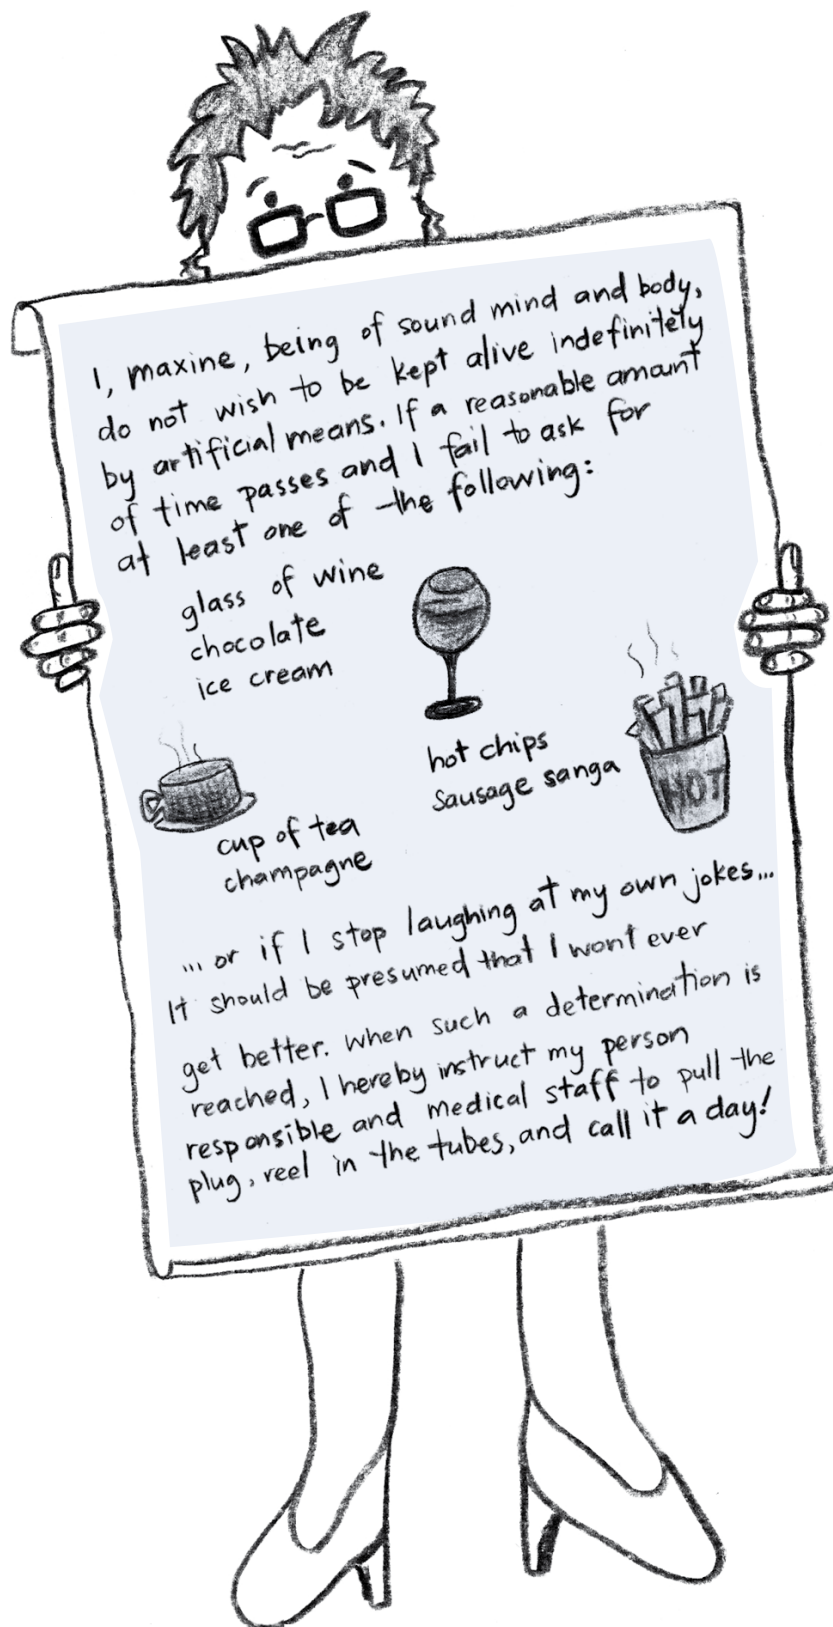 I, maxine, being of sound mind and body,
do not wish to be kept alive indefinitely
by artificial means. If a reasonable amount
of time passes and I fail to ask for
at least one of the following:
glass of wine
chocolate
ice cream
hot chips
sausage sanga
HOT
cup of tea
champagne
... or if I stop laughing at my own jokes...
It should be presumed that I wont ever
get better. when such a determination is
reached, I hereby instruct my person
responsible and medical staff to pull the
plug, reel in the tubes, and call it a day!